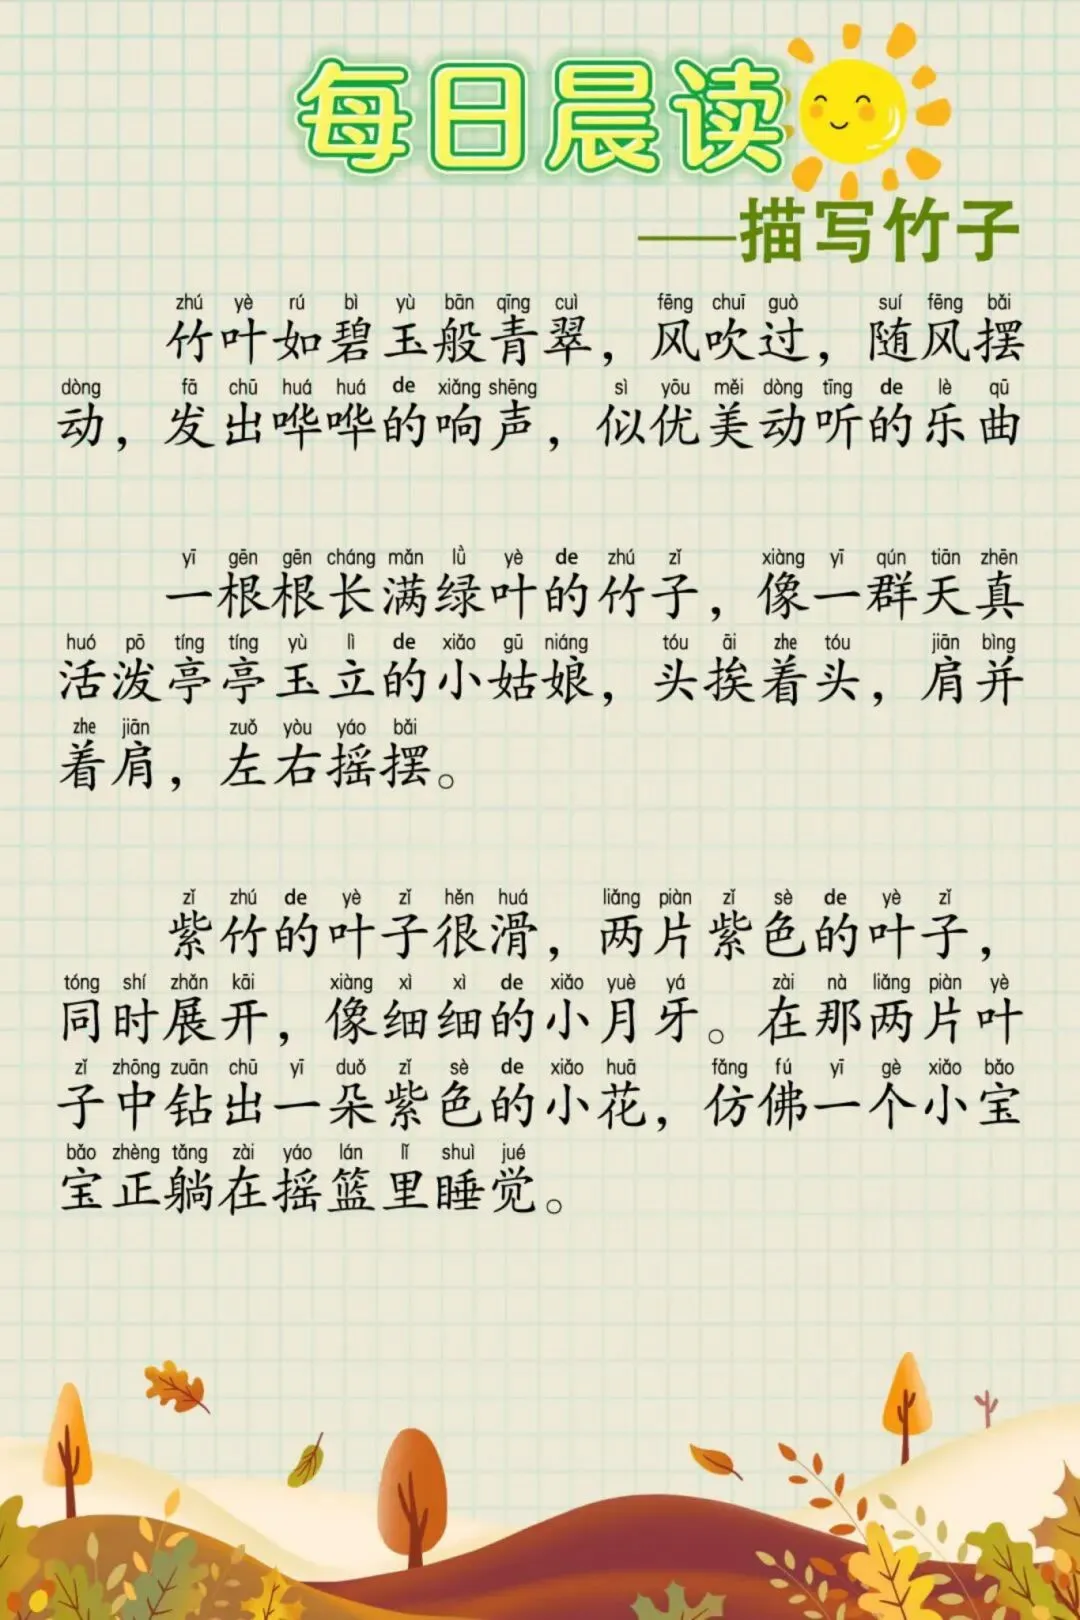 每日晨读
——描写竹子
zhú yè rú bì yù bān qīng cuì fēng chuī guò suí fēng bǎi
竹叶如碧玉般青翠，风吹过，随风摆
dòng fā chū huá huá de xiǎng shēng sì yōu měi dòng tīng de lè qū
动，发出哗哗的响声，似优美动听的乐曲
yī gēn gēn cháng mǎn lǜ yè de zhú zǐ xiàng yī qún tiān zhēn
一根根长满绿叶的竹子，像一群天真
huó pō tíng tíng yù lì de xiǎo gū niáng tóu āi zhe tóu jiān bìng
活泼亭亭玉立的小姑娘，头挨着头，肩并
zhe jiān zuǒ yòu yáo bǎi
着肩，左右摇摆。
zǐ zhú de yè zǐ hěn huá liǎng piàn zǐ sè de yè zǐ
紫竹的叶子很滑，两片紫色的叶子，
tóng shí zhǎn kāi xiàng xì xì de xiǎo yuè yá zài nà liǎng piàn yè
同时展开，像细细的小月牙。在那两片叶
zǐ zhōng zuān chū yī duǒ zǐ sè de xiǎo huā fǎng fú yī gè xiǎo bǎo
子中钻出一朵紫色的小花，仿佛一个小宝
bǎo zhèng tǎng zài yáo lán lǐ shuì jué
宝正躺在摇篮里睡觉。